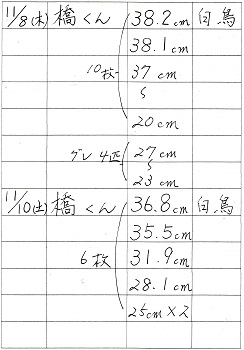 11/8(木) 橋くん 38.2cm 白鳥
38.1cm
10枚 37cm
〜
20cm
グレ 4匹 27cm
〜
23cm
11/10(土) 橋くん 36.8cm 白鳥
35.5cm
6枚 31.9cm
28.1cm
25cm×2